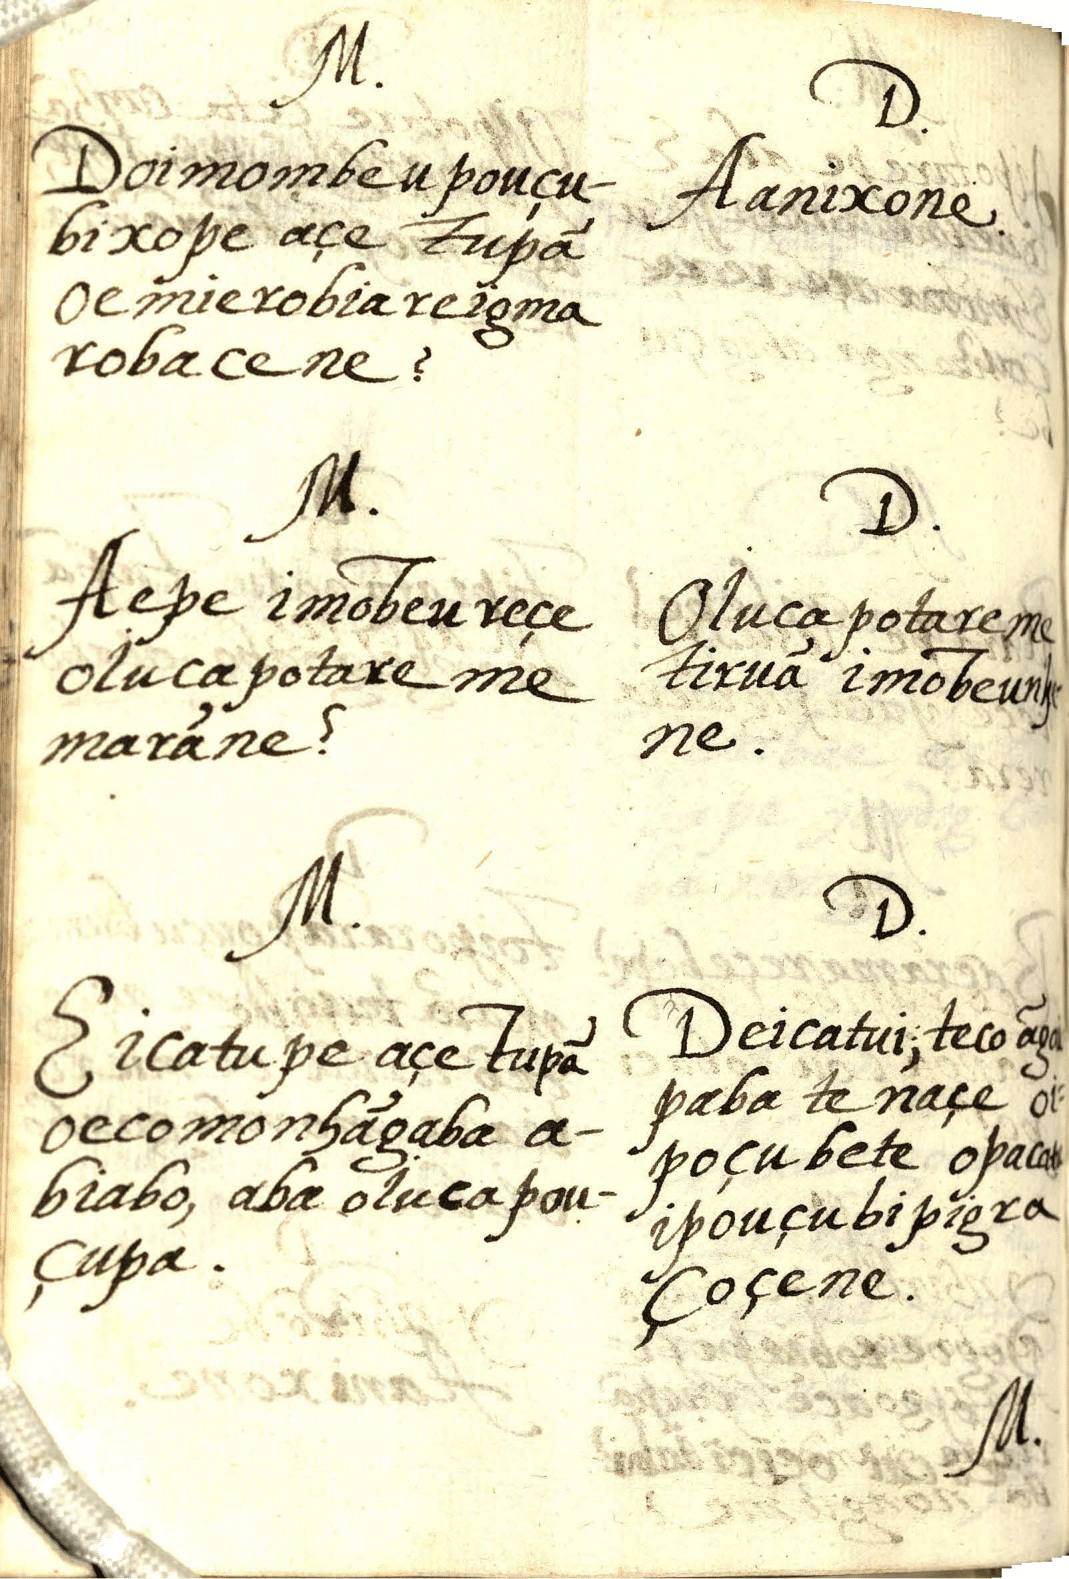 M.
Doimombeu pouçu-
bixope açe Tupã
oemierobiareigma
robacene?
D.
Aanixone.
M.
Aepe imõbeu reçe
olucapotare me
marãne?
D.
Oluca potareme
tiruã imõbeu
ne.
M.
Eicatupe açe Tupã
oecomonhãgaba a-
biabo, aba oluca pou-
çupa.
D.
Deicatui; teco
paba te naçe oi-
poçubete
ipouçubipigra
çoçene.
M.